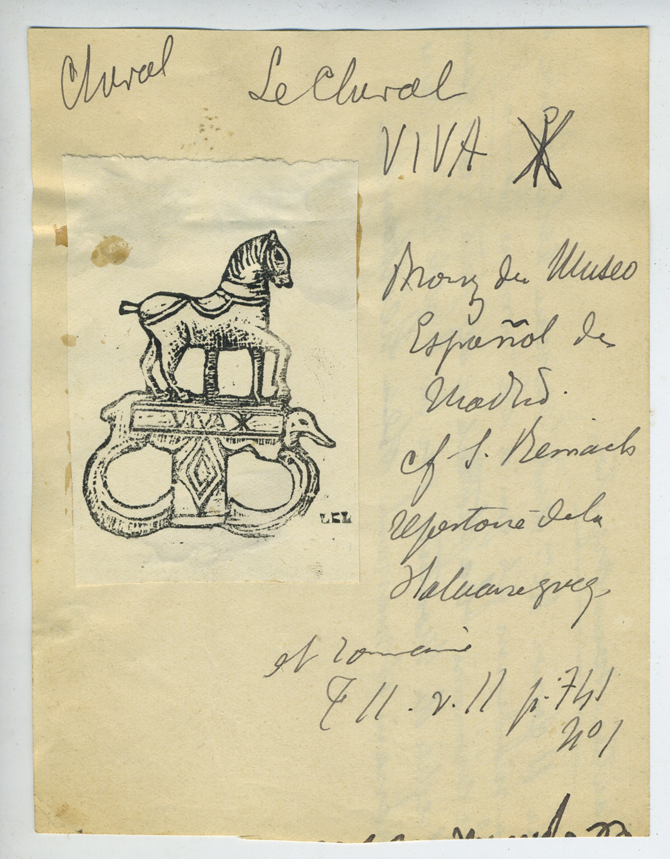 Cheval
Le Cheval
VIVA ☧
VIVA ☧
LCL
Bronz du Museo
Español de
Madrid.
cf S. Reinach
repertoire de la
Statuaire grecq
et romaine
T II. v. II p. 741
n° 1